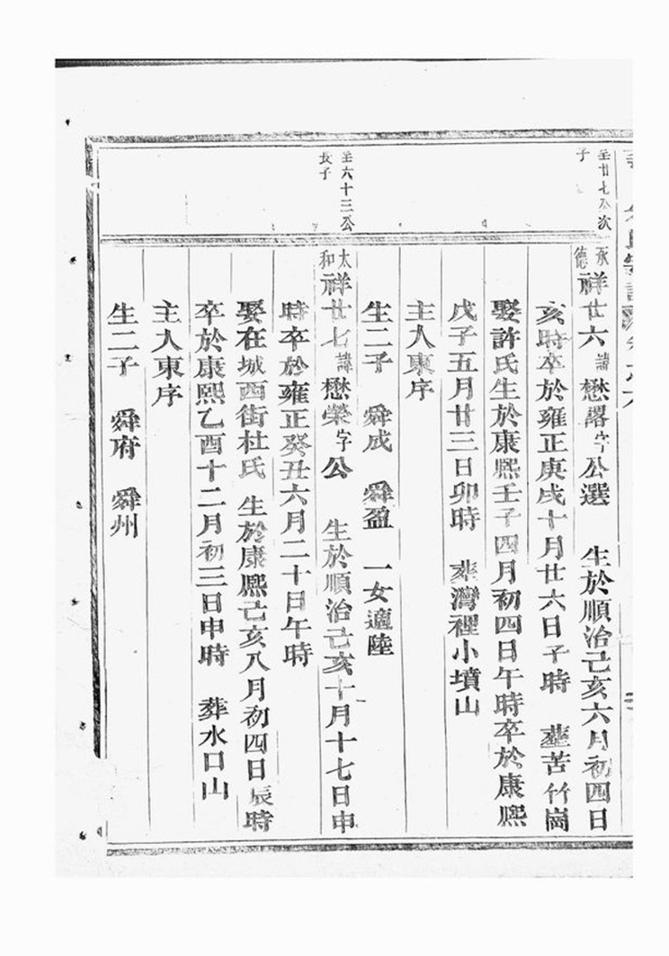 至廿七公次
子
承德
祥廿六諱懋畧字公選 生於順治己亥六月初四日
亥時卒於雍正庚戌十月廿六日子時 葬苦竹崗
娶許氏生於康熙壬子四月初四日午時卒於康熙
戊子五月廿三日卯時 葬灣裡小墳山
主人東序
生二子 舜成 舜盈 一女適陸
至六十三公
長子
太和
祥廿七諱懋榮字公 生於順治己亥十月十七日申
時卒於雍正癸丑六月二十日午時
娶在城西街杜氏 生於康熙己亥八月初四日辰時
卒於康熙乙酉十二月初三日申時 葬水口山
主人東序
生二子 舜府 舜州